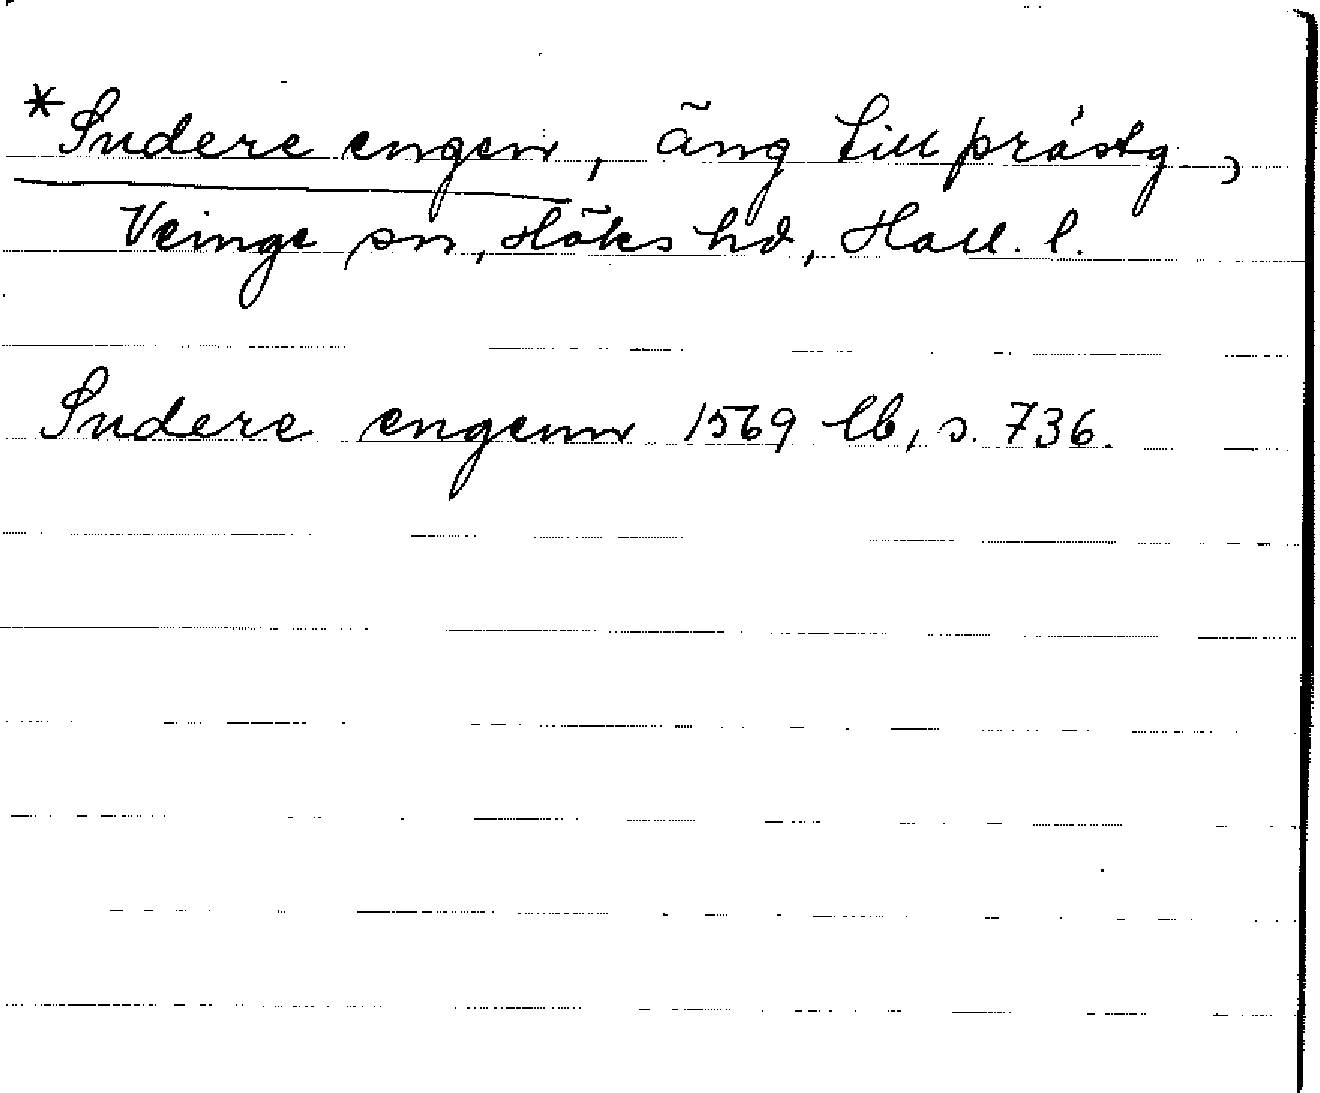 *Sudere engen, äng till prästg.,
Veinge sn, Höks hd, Hall. l.
Sudere engenn 1569 lb, s. 736.